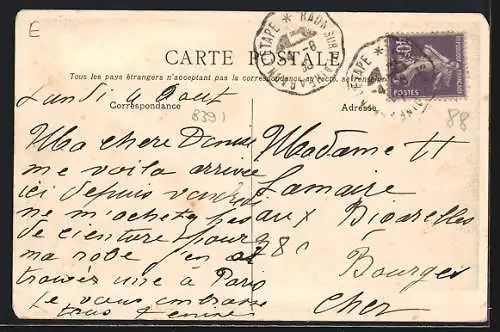 E
CARTE POSTALE
Tous les pays étrangers n'acceptent pas la correspondance au recto,
Correspondance
Adresse
RAON-SUR-P
ETAPE
POSTES
REPUBLIQUE FRANÇAISE
8391
88
Lundi 4 Aout
Ma chere
me voila arrivée
ici depuis vendredi
ne m'achetez pas
de ceinture pour
ma robe j'en ai
trouvée une à Paris
Je vous embrasse
tous
Madame H
Lamaire
aux Bigarelles
Bourges
Cher